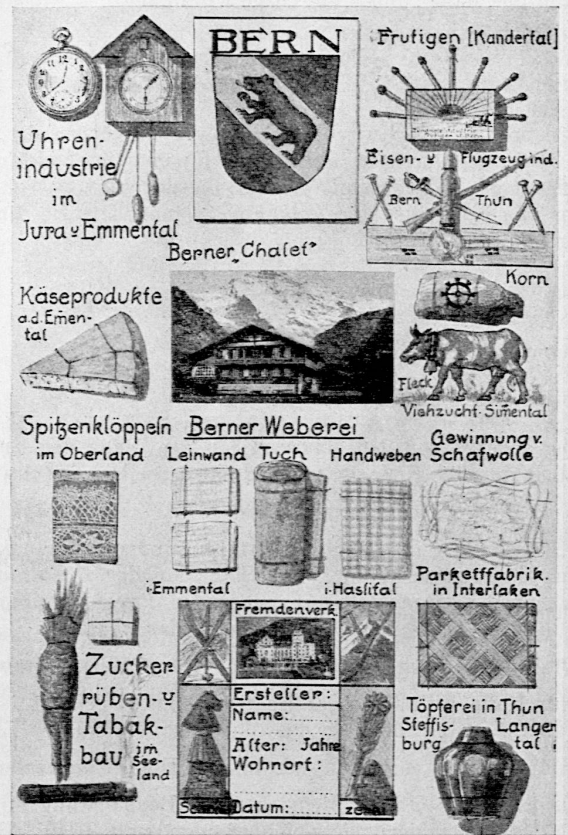 BERN
Frutigen [Kandertal]
Uhren-
industrie
im
Jura u Emmental
Eisen- u Flugzeugind.
Bern
Thun
Berner „Chalet“
Korn
Käseprodukte
a.d. Emen-
tal
Fleck
Viehzucht-Simental
Spitzenklöppeln
im Oberland
Berner Weberei
Leinwand Tuch Handweben
Gewinnung v.
Schafwolle
i. Emmental
i. Haslital
Parkettfabrik.
in Interlaken
Zucker
rüben- u
Tabak-
bau im
See-
land
Fremdenverk
Ersteller:
Name:
Alter: Jahre
Wohnort:
Datum:
Töpferei in Thun
Steffis-
burg
Langen
tal